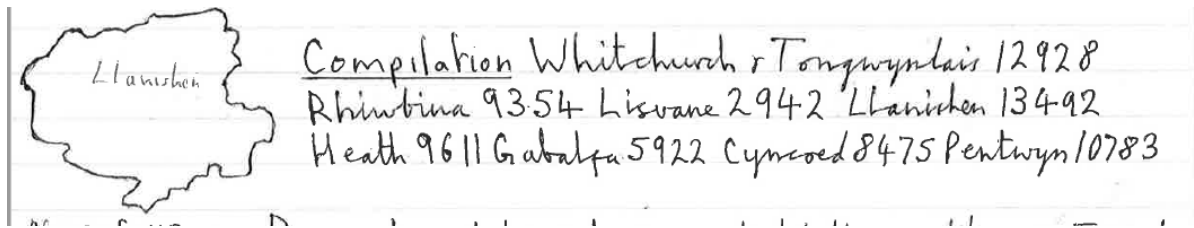 Llanishen
Compilation Whitchurch & Tongwynlais 12928
Rhiwbina 9354 Lisvane 2942 Llanishen 13492
Heath 9611 Gabalfa 5922 Cyncoed 8475 Pentwyn 10783